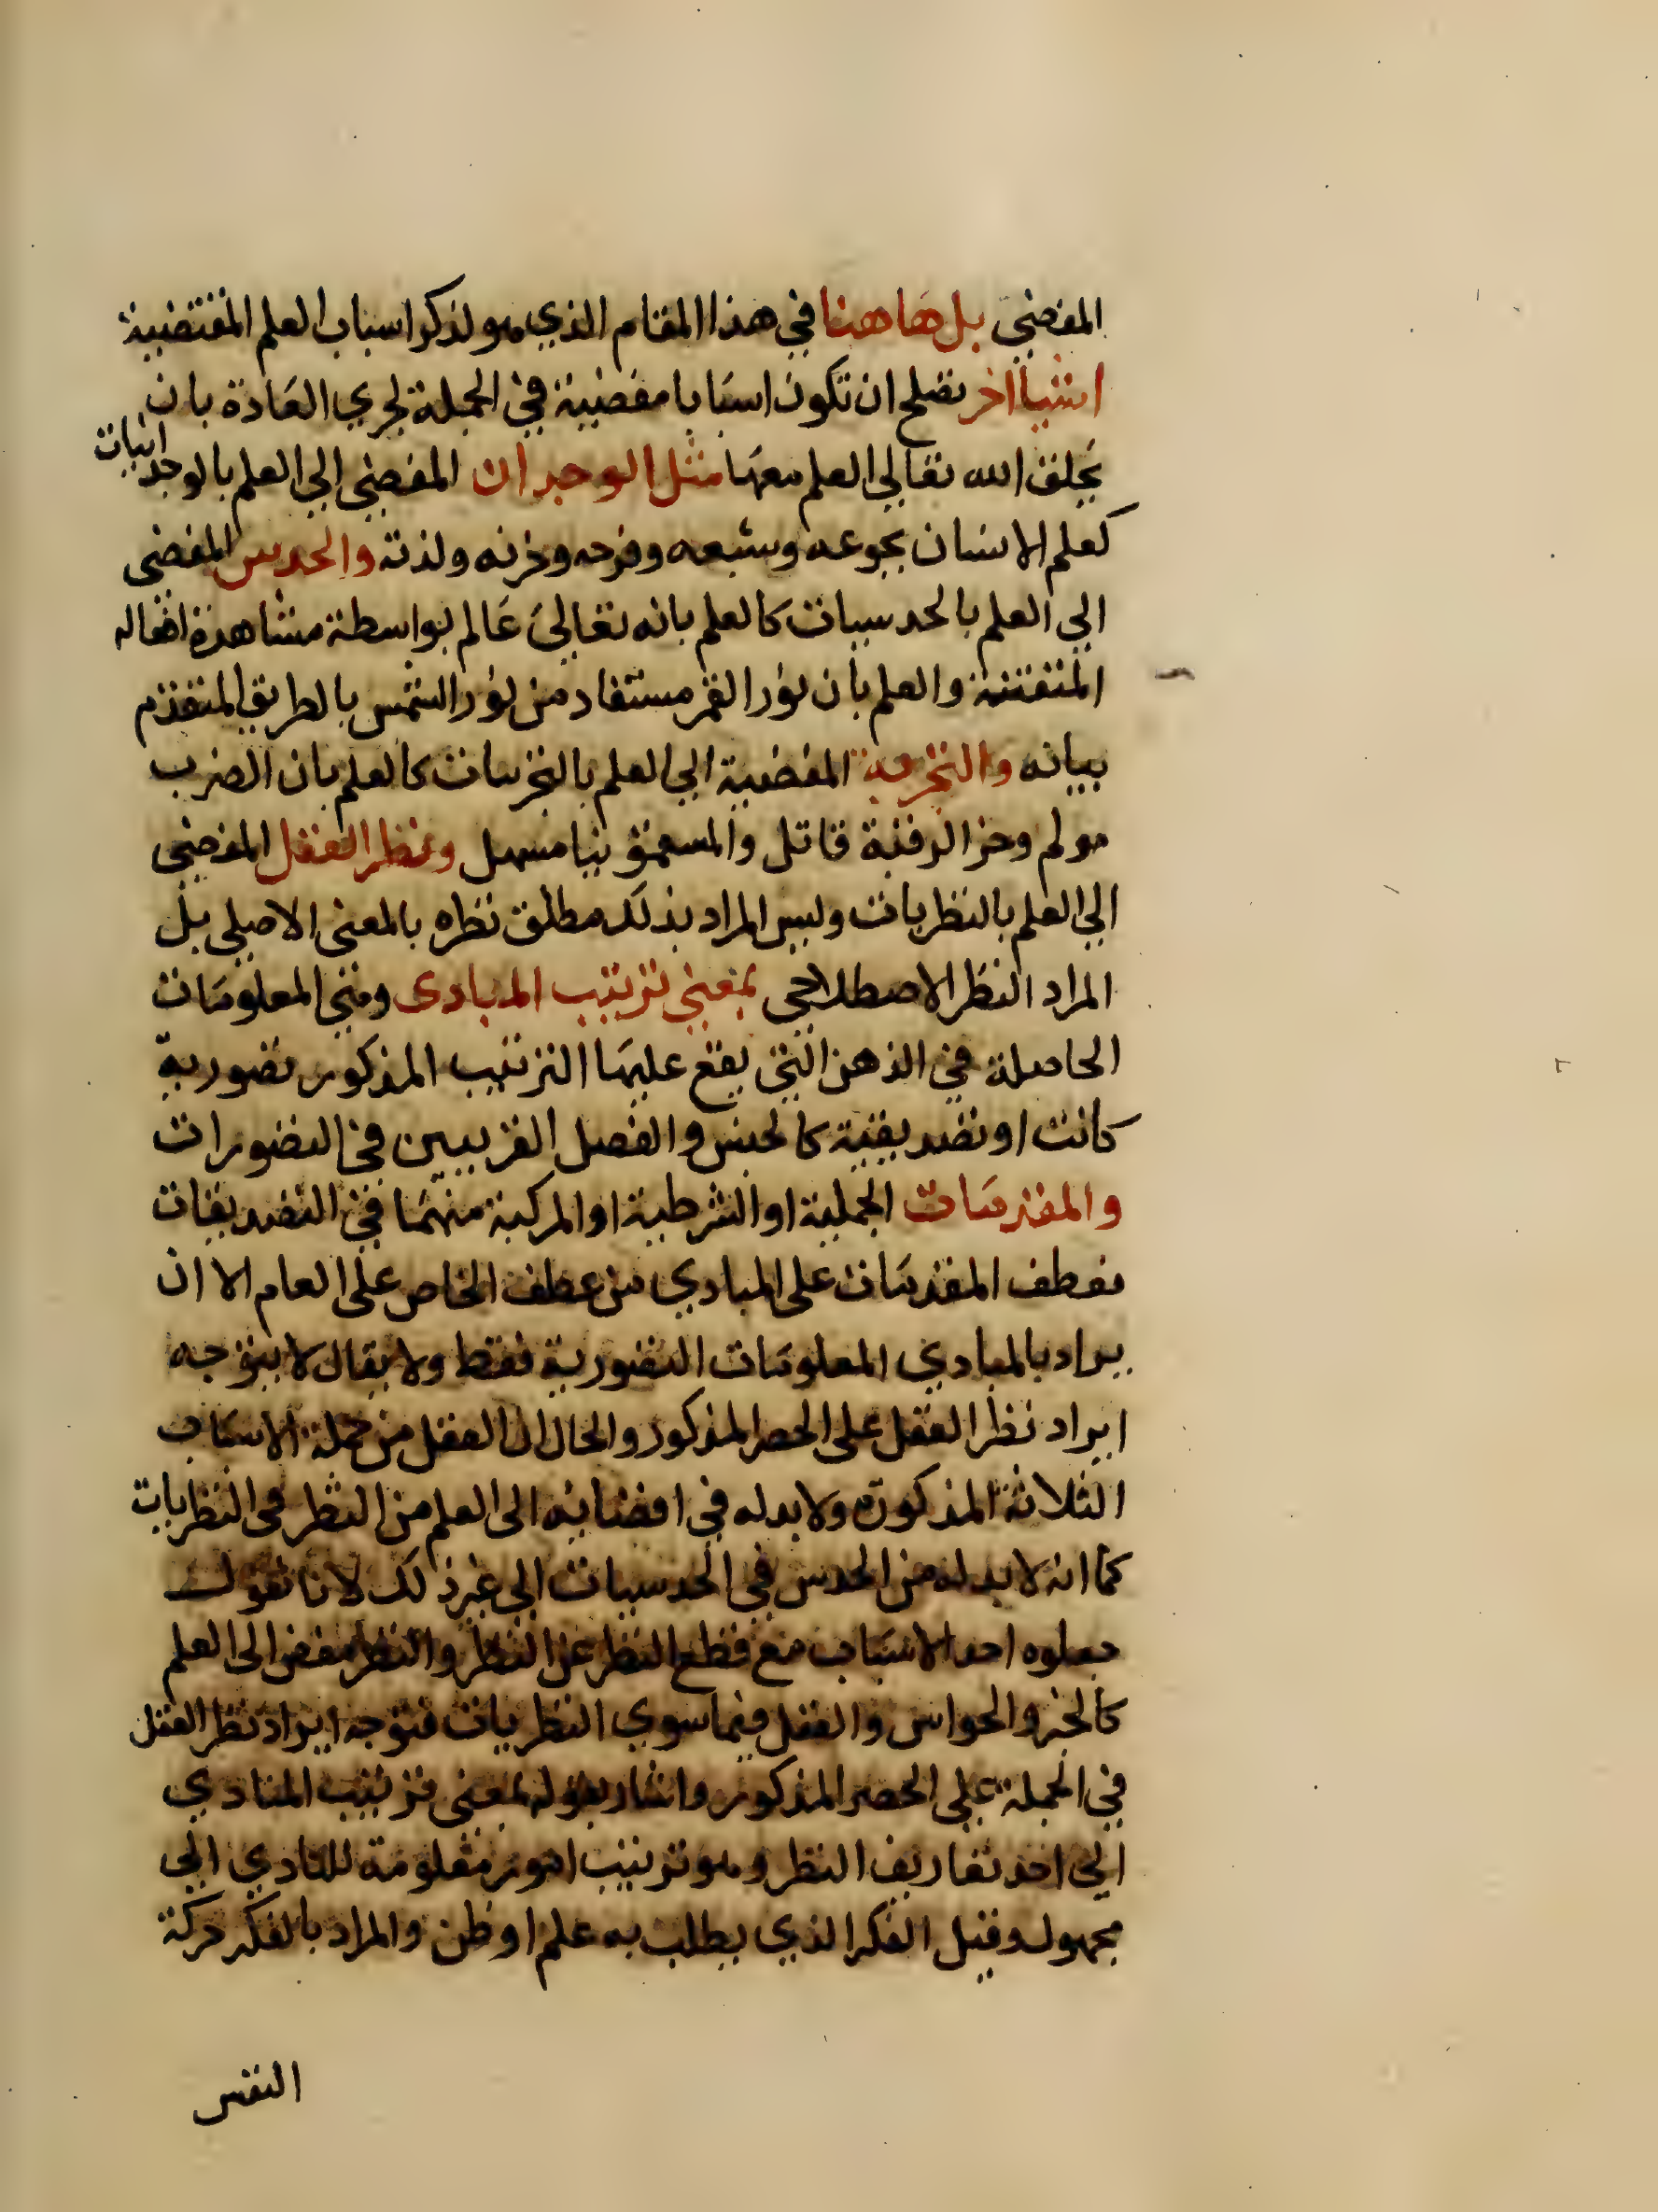 المفضي بل هاهنا في هذا المقام الذي هو لذكر اسباب العلم المقتضية
اشيا اخر تصلح ان تكون اسبابا مفضية في الجملة لجري العادة بان
يخلق الله تعالي العلم معها مثل الوجدان المفضي الي العلم بالوجدانيات
كعلم الانسان بجوعه وشبعه وفرحه وحزنه ولذته والحدس المفضي
الي العلم بالحدسيات كالعلم بانه تعالي عالم بواسطة مشاهدة افعاله
المتقنة والعلم بان نور القمر مستفاد من نور الشمس بالطريق المتقدم
بيانه والتجربة المفضية الي العلم بالتجربيات كالعلم بان الضرب
مولم وحز الرقبة قاتل والسقمونيا مسهل ونظر العقل المفضي
الي العلم بالنظريات وليس المراد بذلك مطلق نظره بالمعني الاصلي بل
المراد النظر الاصطلاحي بمعني ترتيب المبادى وهي المعلومات
الحاصلة في الذهن التي يقع عليها الترتيب المذكور تصورية
كانت او تصديقية كالجنس والفصل القريبين في التصورات
والمقدمات الحملية او الشرطية او المركبة منهما في التصديقات
فعطف المقدمات على المبادي من عطف الخاص على العام الا ان
يراد بالمبادي المعلومات التصورية فقط ولا يقال لا يتوجه
ايراد نظر العقل على الحصر المذكور والحال ان العقل من جملة الاسباب
الثلاثة المذكورة ولا بد له في افضائه الى العلم من النظر في النظريات
كما انه لا بد له من الحدس في الحدسيات الي غير ذلك لانا نقول
جعلوه احد الاسباب مع قطع النظر عن النظر والنظر مفض الى العلم
كالخبر والحواس والعقل فيما سوي النظريات فتوجه ايراد نظر العقل
في الجملة علي الحصر المذكور واشار بقوله بمعنى ترتيب المبادي
الي احد تعاريف النظر وهو ترتيب امور معلومة للتادي الي
مجهول وقيل الفكر الذي يطلب به علم او ظن والمراد بالفكر حركة
النفس